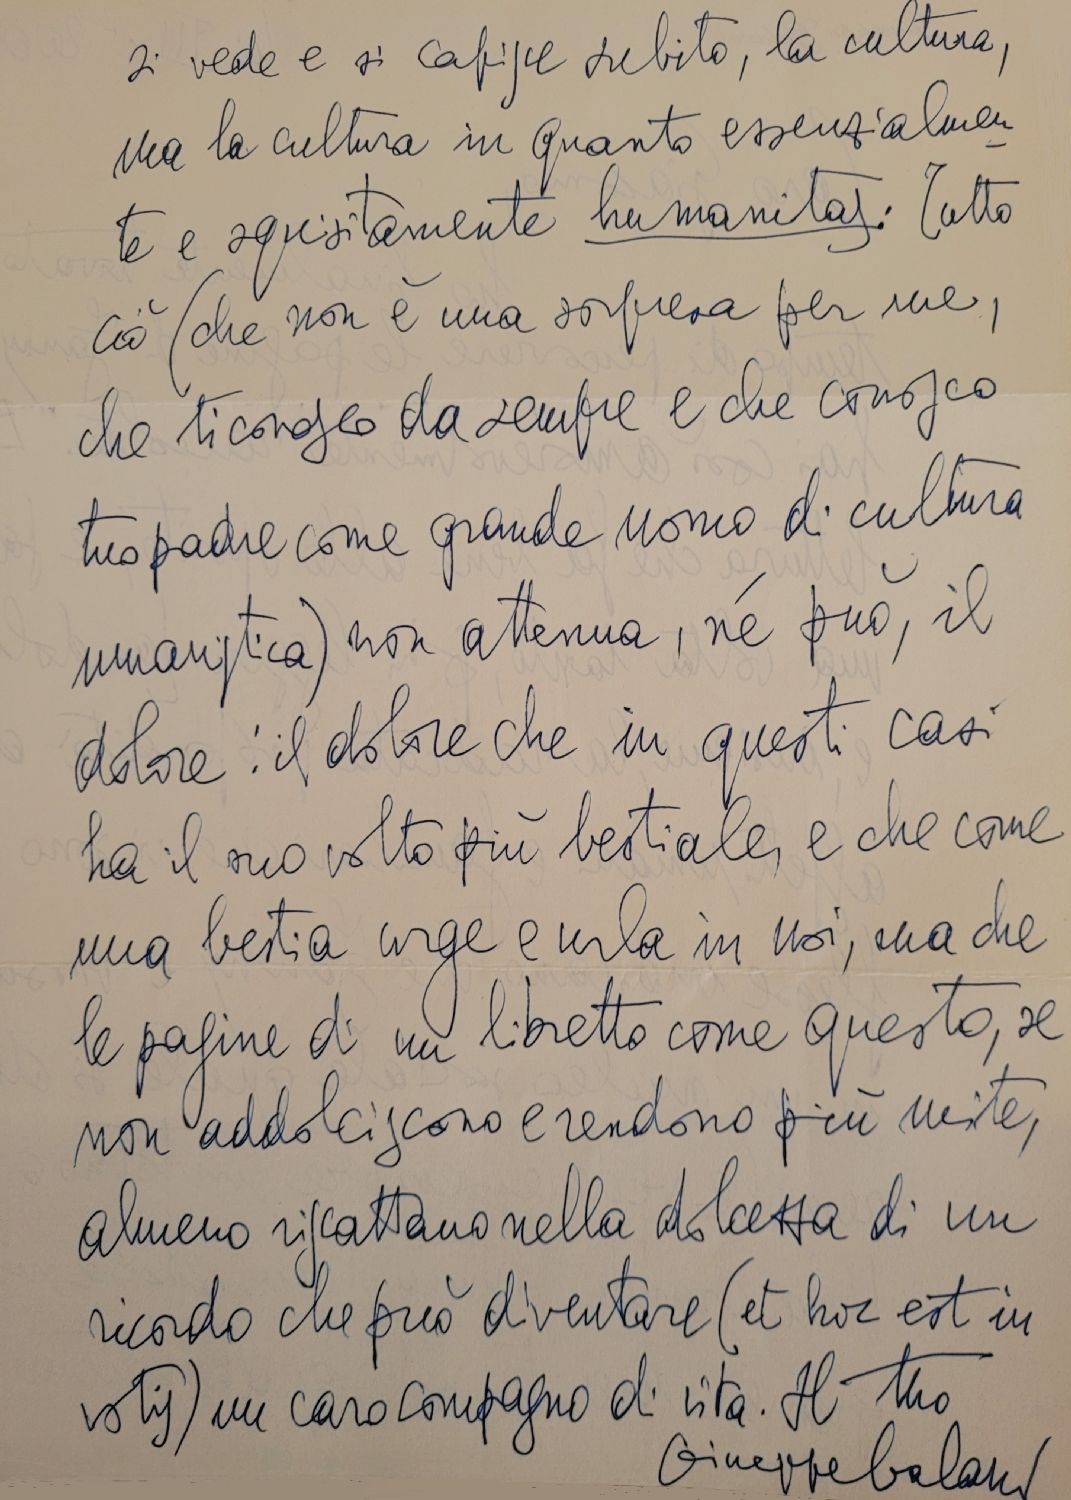 si vede e si capisce subito, la cultura,
ma la cultura in quanto essenzialmen-
te e squisitamente humanitas. Tutto
ciò (che non è una sorpresa per me,
che ti conosco da sempre e che conosco
tuo padre come grande uomo di cultura
umanistica) non attenua, né può, il
dolore: il dolore che in questi casi
ha il suo volto più bestiale, e che come
una bestia urge e urla in noi, ma che
le pagine di un libretto come questo, se
non addolciscono e rendono più mite,
almeno riscattano nella dolcezza di un
ricordo che può diventare (et hoc est in
votis) un caro compagno di vita. Il tuo
Giuseppe